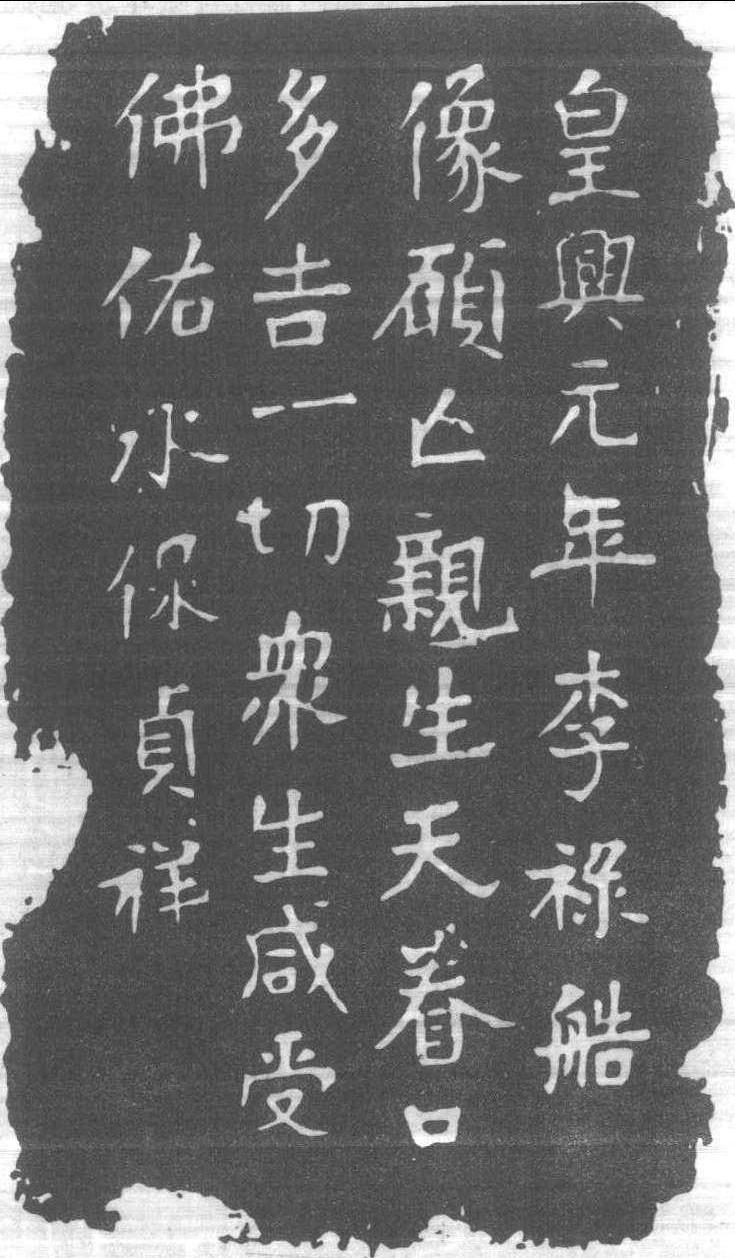 皇興元年李祿艁
像願亡親生天眷口
多吉一切衆生咸受
佛佑永保貞祥